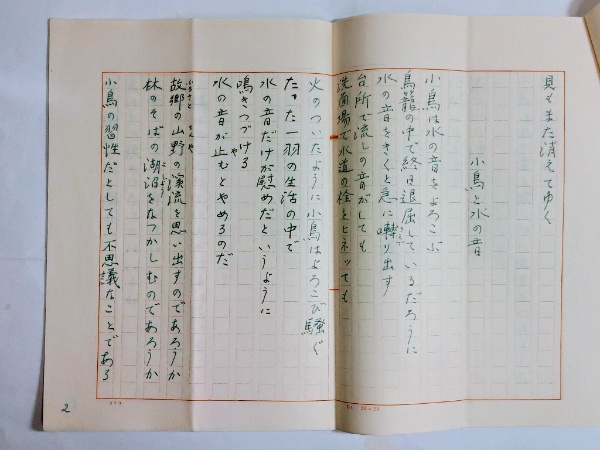 貝もまた消えてゆく
小鳥と水の音
小鳥は水の音をよろこぶ
鳥籠の中で終日退屈しているだろうに
水の音をきくと急に囀り出す
台所で流しの音がしても
洗面場で水道の栓をヒネッても
火のついたように小鳥はよろこび騒ぐ
たった一羽の生活の中で
水の音だけが慰めだというように
鳴きつづける
水の音が止むとやめるのだ
故郷の山野の渓流を思い出すのであろうか
林のそばの湖沼をなつかしむのであろうか
小鳥の習性だとしても不思議なことである
2